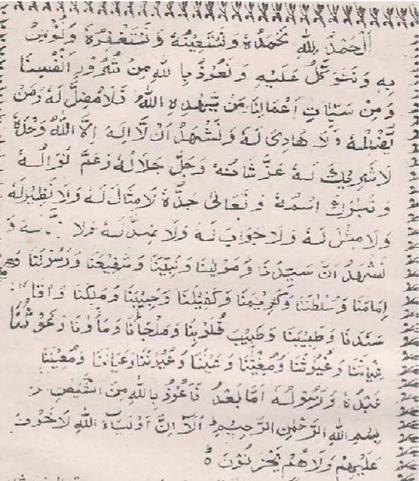 اَلْحَمْدُ لِلّٰهِ نَحْمَدُهٗ وَنَسْتَعِيْنُهٗ وَنَسْتَغْفِرُهٗ وَنُؤْمِنُ
بِهٖ وَنَتَوَكَّلُ عَلَيْهِ وَنَعُوْذُ بِاللّٰهِ مِنْ شُرُوْرِ اَنْفُسِنَا
وَمِنْ سَيِّاٰتِ اَعْمَالِنَا مَنْ يَّهْدِهِ اللّٰهُ فَلَا مُضِلَّ لَهٗ وَمَنْ
يُّضْلِلْهُ وَلَا هَادِىَ لَهٗ وَنَشْهَدُ اَنْ لَّا اِلٰهَ اِلَّا اللّٰهُ وَحْدَهٗ
لَا شَرِيْكَ لَهٗ عَزَّ شَانُهٗ وَجَلَّ جَلَالُهٗ وَعَمَّ نَوَالُهٗ
وَتَبَارَكَ اسْمُهٗ وَتَعَالٰى جَدُّهٗ لَا مِثَالَ لَهٗ وَلَا نَظِيْرَ لَهٗ
وَلَا مِثْلَ لَهٗ وَلَا جَوَابَ لَهٗ وَلَا لَهٗ وَلَا لَهٗ وَ
نَشْهَدُ اَنَّ سَيِّدَنَا وَمَوْلٰىنَا وَنَبِيَّنَا وَشَفِيْعَنَا وَرَسُوْلَنَا
اِمَامَنَا وَسُلْطٰنَنَا وَكَرِيْمَنَا وَكَفِيْلَنَا وَحَبِيْبَنَا وَمَلِكَنَا
سَنَدَنَا وَطَبِيْبَنَا وَطَبِيْبَ قُلُوْبِنَا وَمَلْجَانَا وَمَاْوٰنَا وَغَوْثَنَا
وَمُغِيْثَنَا وَمُعِيْنَنَا
عَبْدُهٗ وَرَسُوْلُهٗ اَمَّا بَعْدُ فَاَعُوْذُ بِاللّٰهِ مِنَ الشَّيْطٰنِ
بِسْمِ اللّٰهِ الرَّحْمٰنِ الرَّحِيْمِ اَلَا اِنَّ اَوْلِيَآءَ اللّٰهِ لَا خَوْفٌ
عَلَيْهِمْ وَلَا هُمْ يَحْزَنُوْنَ ۝